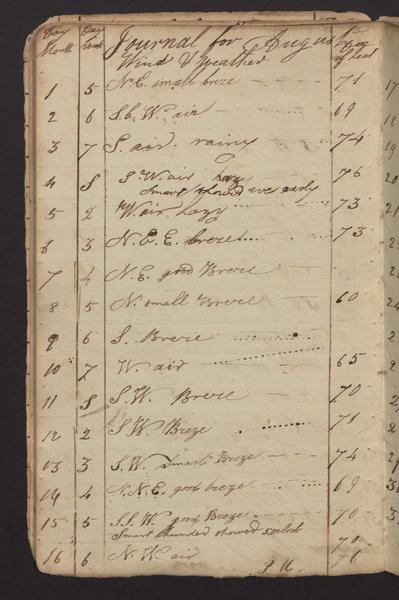 Day Month Day Week Journal for August Deg of heat
Wind & Weather
1 5 N.E. small breze 71
2 6 S.b. W. air 69
3 7 S. air. rainy 74
4 S S.W air hazy 76
Smart shower eve early
5 2 W. air hazy 73
6 3 N.E.E. breze 73
7 4 N.E. good Breze
8 5 N. small Breze 60
9 6 S. Breze
10 7 W. air 65
11 S S.W. Breze 70
12 2 S W Breze 71
13 3 S.W. smart Breze 74
14 4 N.N.E. good breze 69
15 5 S.S.W. good Breze 70
Smart thunder shower 5 oclock
70
16 6 N. W. air 76